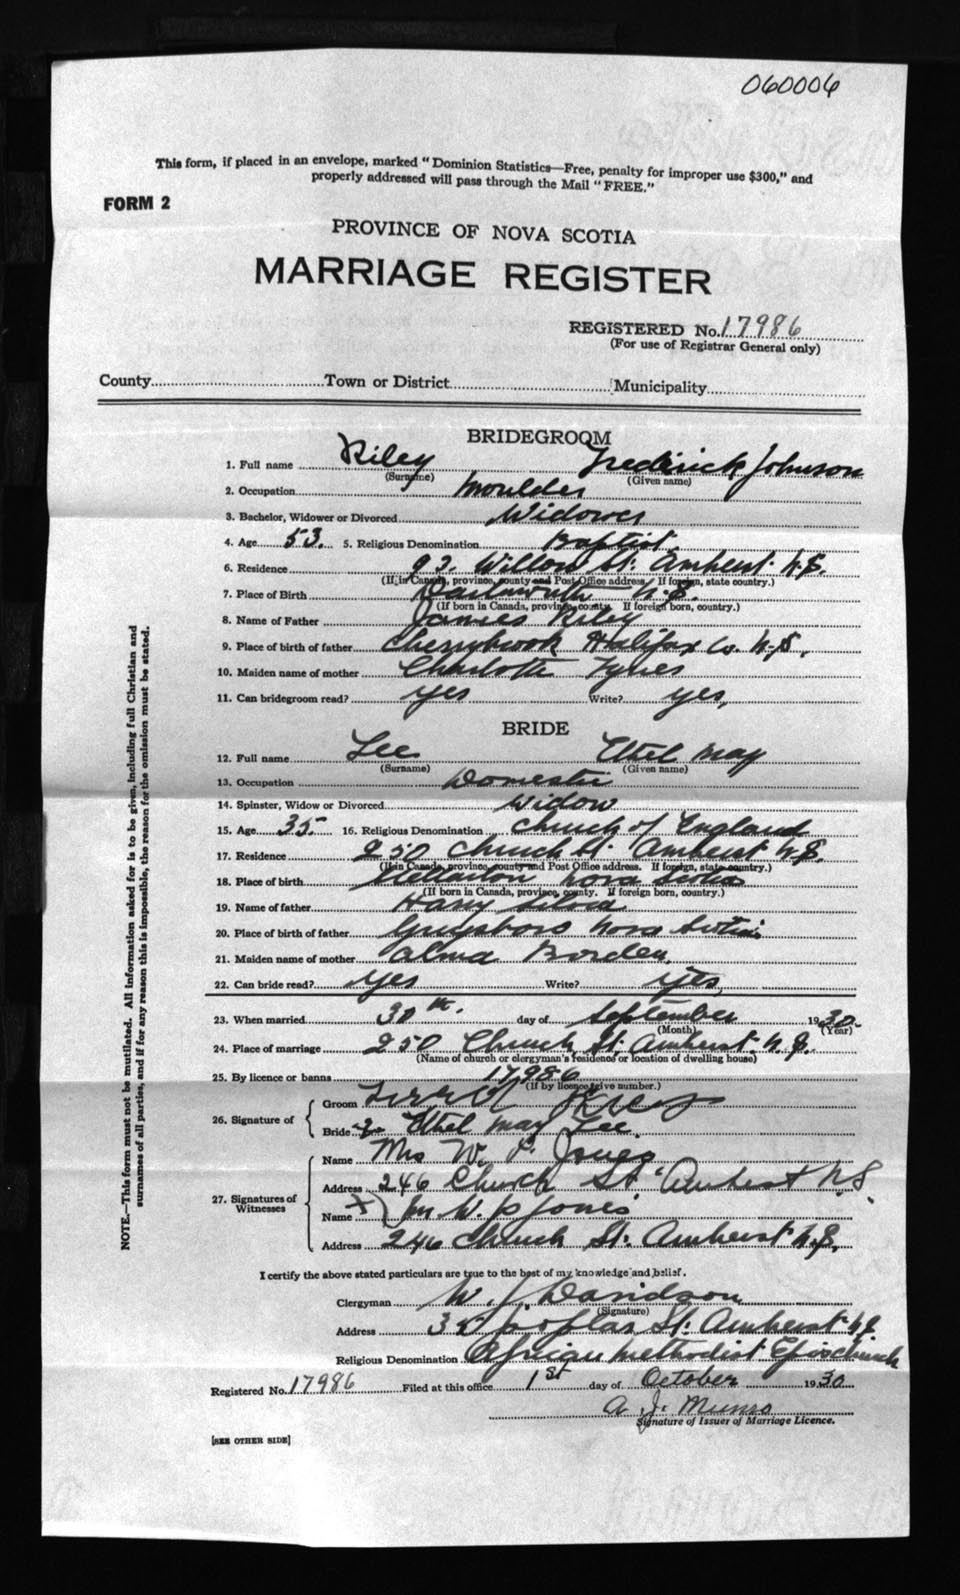 060006
This form, if placed in an envelope, marked "Dominion Statistics—Free, penalty for improper use $300," and
properly addressed will pass through the Mail "FREE."
FORM 2
PROVINCE OF NOVA SCOTIA
MARRIAGE REGISTER
REGISTERED No. 17986
(For use of Registrar General only)
County Town or District Municipality
BRIDEGROOM
1. Full name Riley Frederick Johnson
(Surname) (Given name)
2. Occupation Moulder
3. Bachelor, Widower or Divorced Widower
4. Age 53. 5. Religious Denomination Baptist
6. Residence 92. Willow St. Amherst N.S.
(If in Canada, province, county and Post Office address. If foreign, state country.)
7. Place of Birth Dartmouth N.S.
(If born in Canada, province, county. If foreign born, country.)
8. Name of Father James Riley
9. Place of birth of father Cherrybrook Halifax Co. N.S.
10. Maiden name of mother Charlotte Tynes
11. Can bridegroom read? yes Write? yes,
BRIDE
12. Full name Lee Ethel May
(Surname) (Given name)
13. Occupation Domestic
14. Spinster, Widow or Divorced Widow
15. Age 35. 16. Religious Denomination Church of England
17. Residence 250 Church St. Amherst N.S.
(If in Canada, province, county and Post Office address. If foreign, state country.)
18. Place of birth Nova Scotia
(If born in Canada, province, county. If foreign born, country.)
19. Name of father Harry
20. Place of birth of father Guysboro Nova Scotia
21. Maiden name of mother Alma Borden,
22. Can bride read? yes Write? yes,
23. When married 30th. day of September 1930.
(Month) (Year)
24. Place of marriage 250 Church St. Amherst. N.S.
(Name of church or clergyman's residence or location of dwelling house)
25. By licence or banns 17986
(If by licence, give number.)
26. Signature of Groom
Bride Ethel May Lee.
27. Signatures of Witnesses
Name Mrs W. P. Jones
Address 246 Church St. Amherst N.S.
Name X W. P Jones
Address 246 Church St. Amherst N.S.
I certify the above stated particulars are true to the best of my knowledge and belief.
Clergyman W. J. Davidson
(Signature)
Address poplar St. Amherst N.S
Religious Denomination African Methodist Epis Church
Registered No. 17986 Filed at this office 1st day of October 1930
A. J. Munro
Signature of Issuer of Marriage Licence.
[SEE OTHER SIDE]
NOTE.—This form must not be mutilated. All information asked for is to be given, including full Christian and
surnames of all parties, and if for any reason this is impossible, the reason for the omission must be stated.